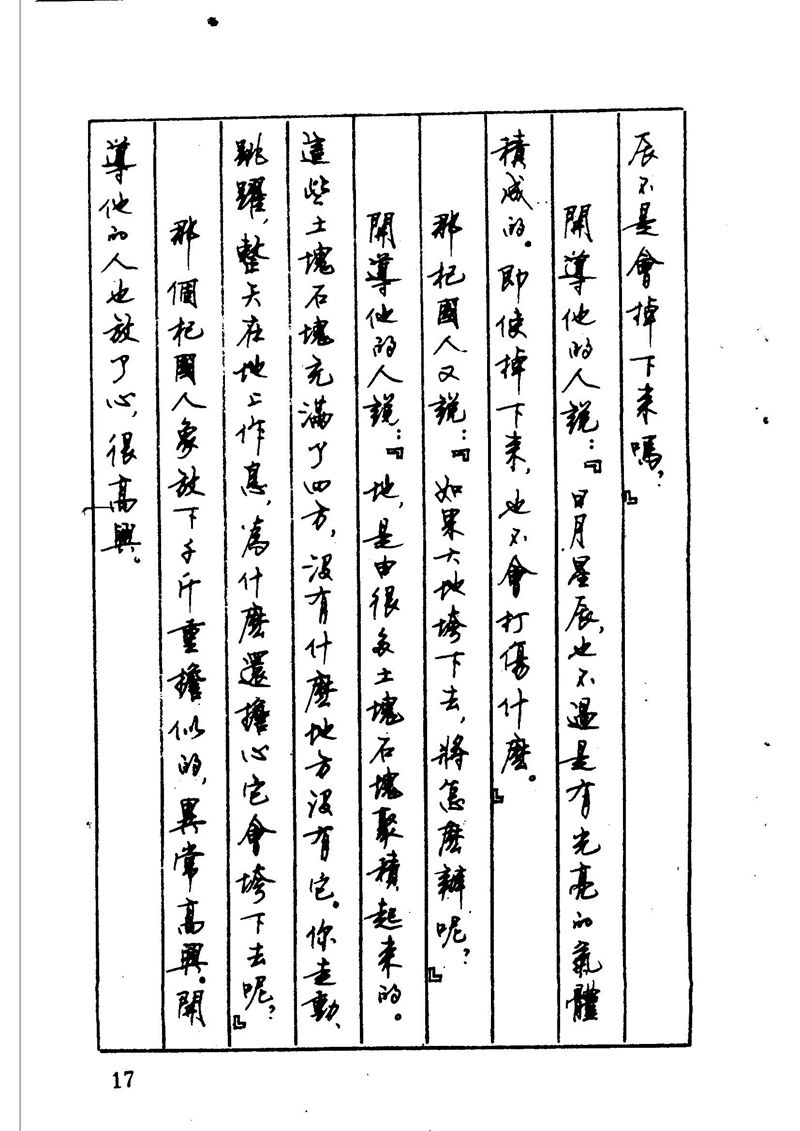 辰不是會掉下來嗎？』
開導他的人說：『日月星辰，也不過是有光亮的氣體
積成的。即使掉下來，也不會打傷什麽。』
那杞國人又說：『如果大地垮下去，將怎麽辦呢？』
開導他的人說：『地，是由很多土塊石塊聚積起来的。
這些土塊石塊充滿了四方，沒有什麽地方沒有它。你走動、
跳躍，整天在地上作息，為什麽還擔心它會垮下去呢？』
那個杞國人象放下千斤重擔似的，異常高興。開
導他的人也放了心，很高興。
17